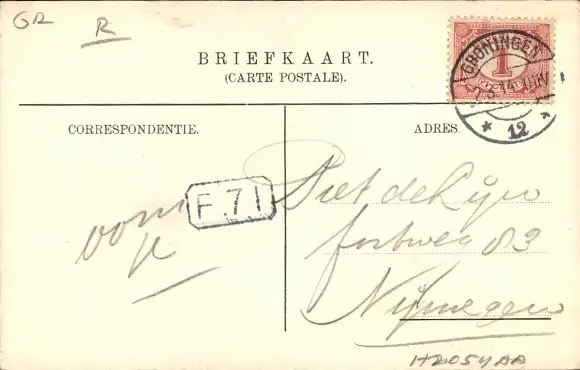 GR
R
BRIEFKAART.
(CARTE POSTALE).
GRONINGEN
1
12
CORRESPONDENTIE.
ADRES.
F.71
Piet de Rijn
83
Nijmegen
H2054AA